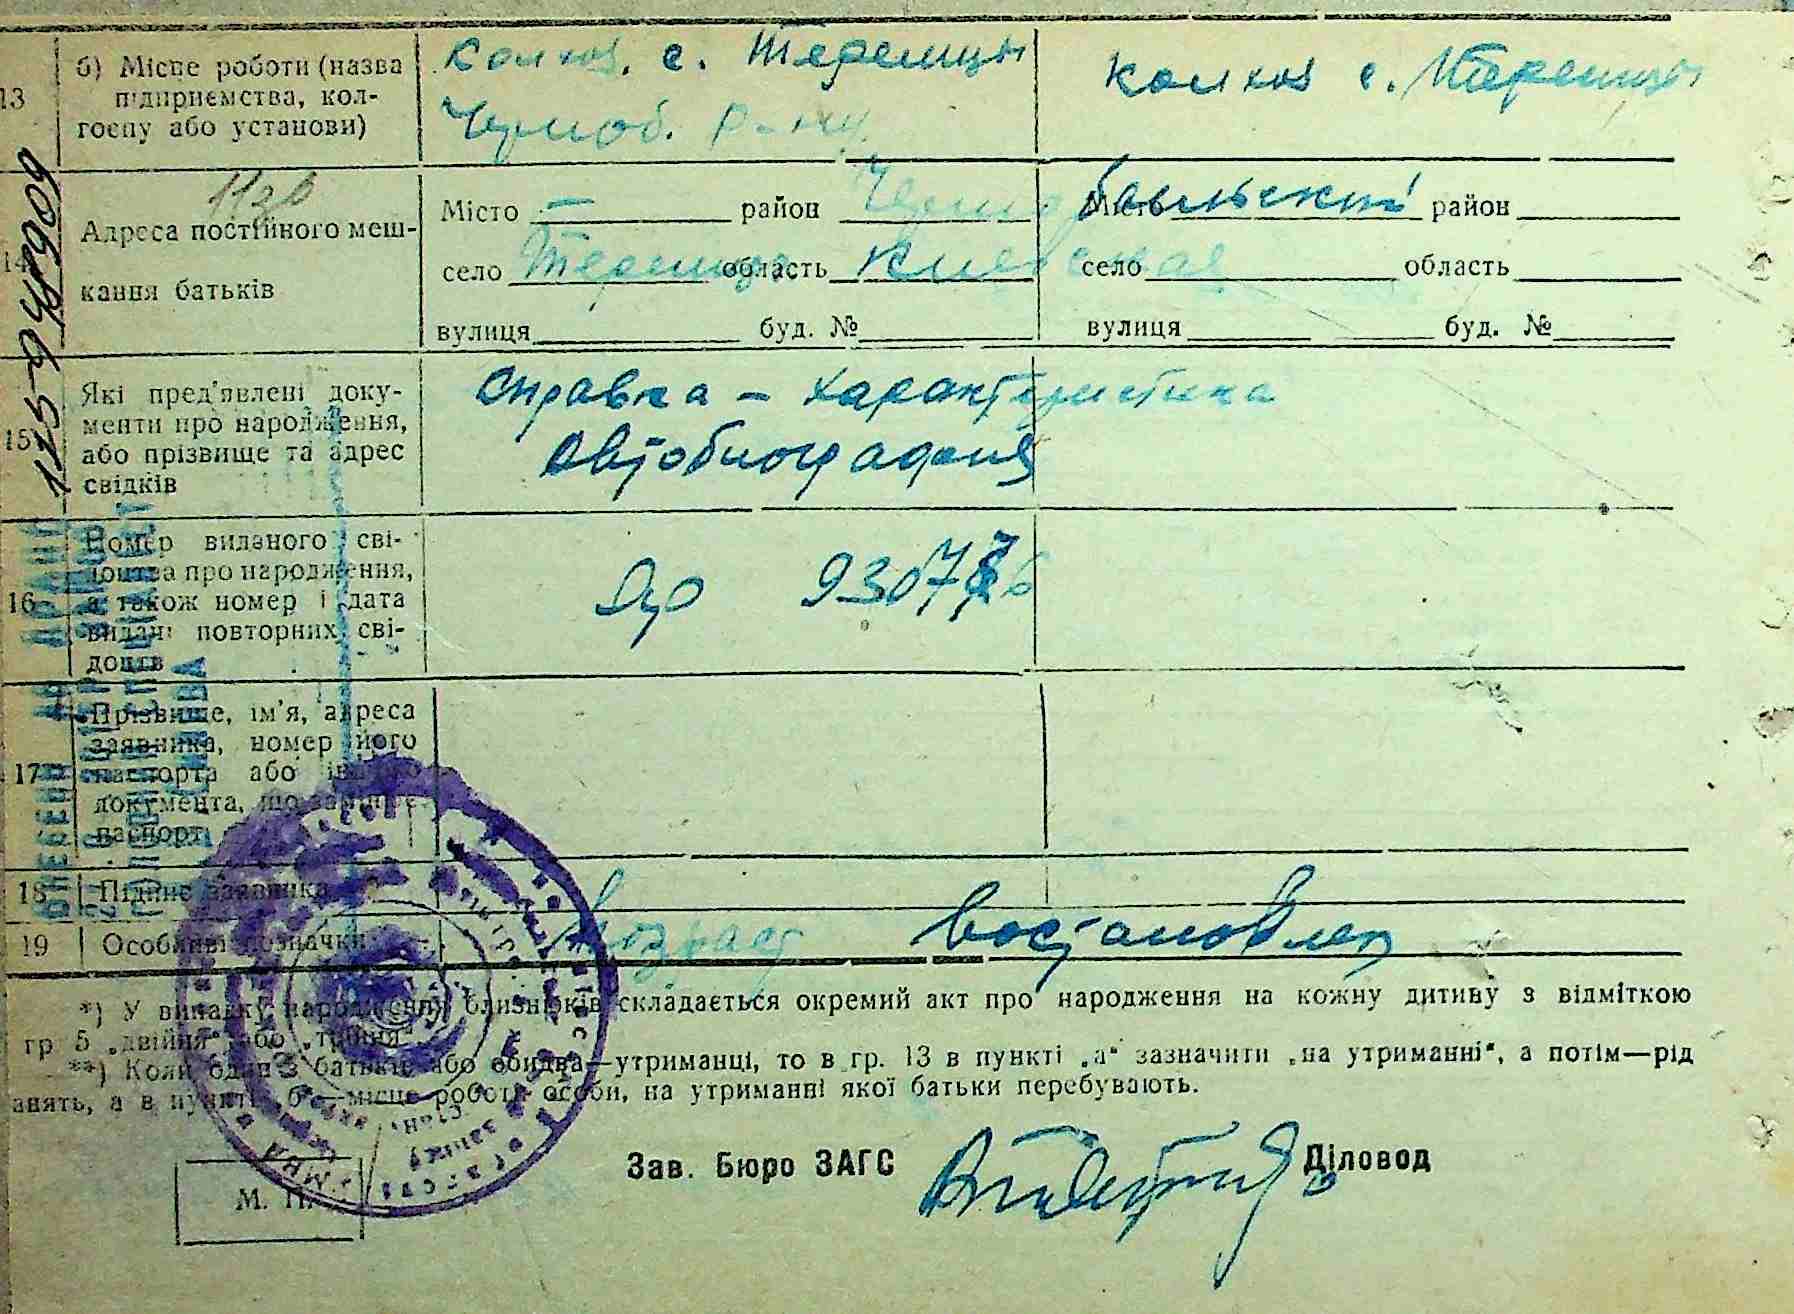 13 б) Місце роботи (назва підприємства, кол-
госпу або установи)
Колхоз. с. Теремцы
Черноб. р-ну
Колхоз с. Теремцы
14 Адреса постійного меш-
кання батьків
Місто — район Чернобыльский Місто район
село Теремцы область Киевская село область
вулиця буд. № вулиця буд. №
15 Які пред'явлені доку-
менти про народження,
або прізвище та адрес
свідків
Справка - характеристика
Автобиография
16 Номер виданого сві-
доцтва про народження,
а також номер і дата
видачі повторних сві-
доцтв
17 Прізвище, ім'я, адреса
заявника, номер його
паспорта або іншого
документа, що замінює
паспорт
18 Підпис заявника
19 Особливі позначки
Возраст востановлен
*) У випадку народження близнюків складається окремий акт про народження на кожну дитину з відміткою
гр 5 „двійня" або „трійня".
**) Коли один з батьків або обидва—утриманці, то в гр. 13 в пункті „а" зазначити „на утриманні", а потім—рід
анять, а в пункті „б"—місце роботи особи, на утриманні якої батьки перебувають.
Зав. Бюро ЗАГС
Діловод
М. П.